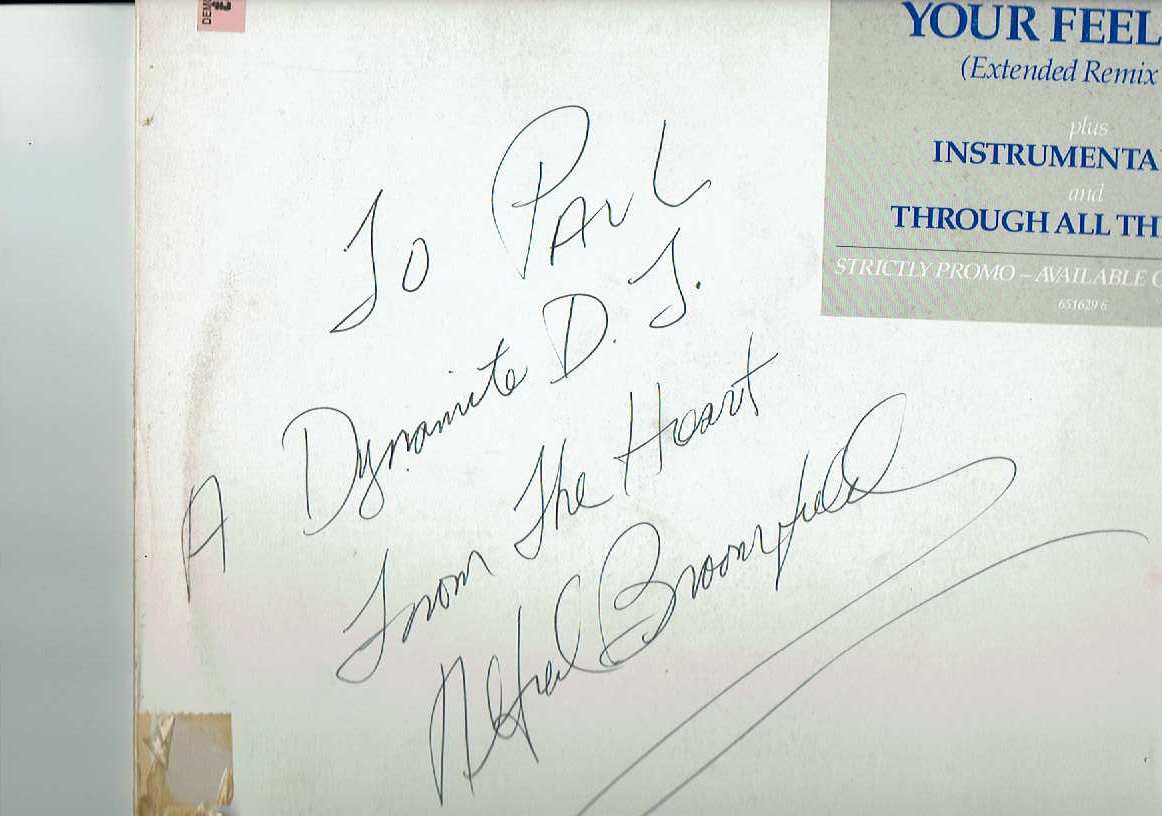 YOUR FEEL
(Extended Remix
plus
INSTRUMENTA
and
THROUGH ALL TH
STRICTLY PROMO – AVAILABLE
651629 6
To Paul
A Dynamite D.J.
From The Heart
Alfred Broomfield